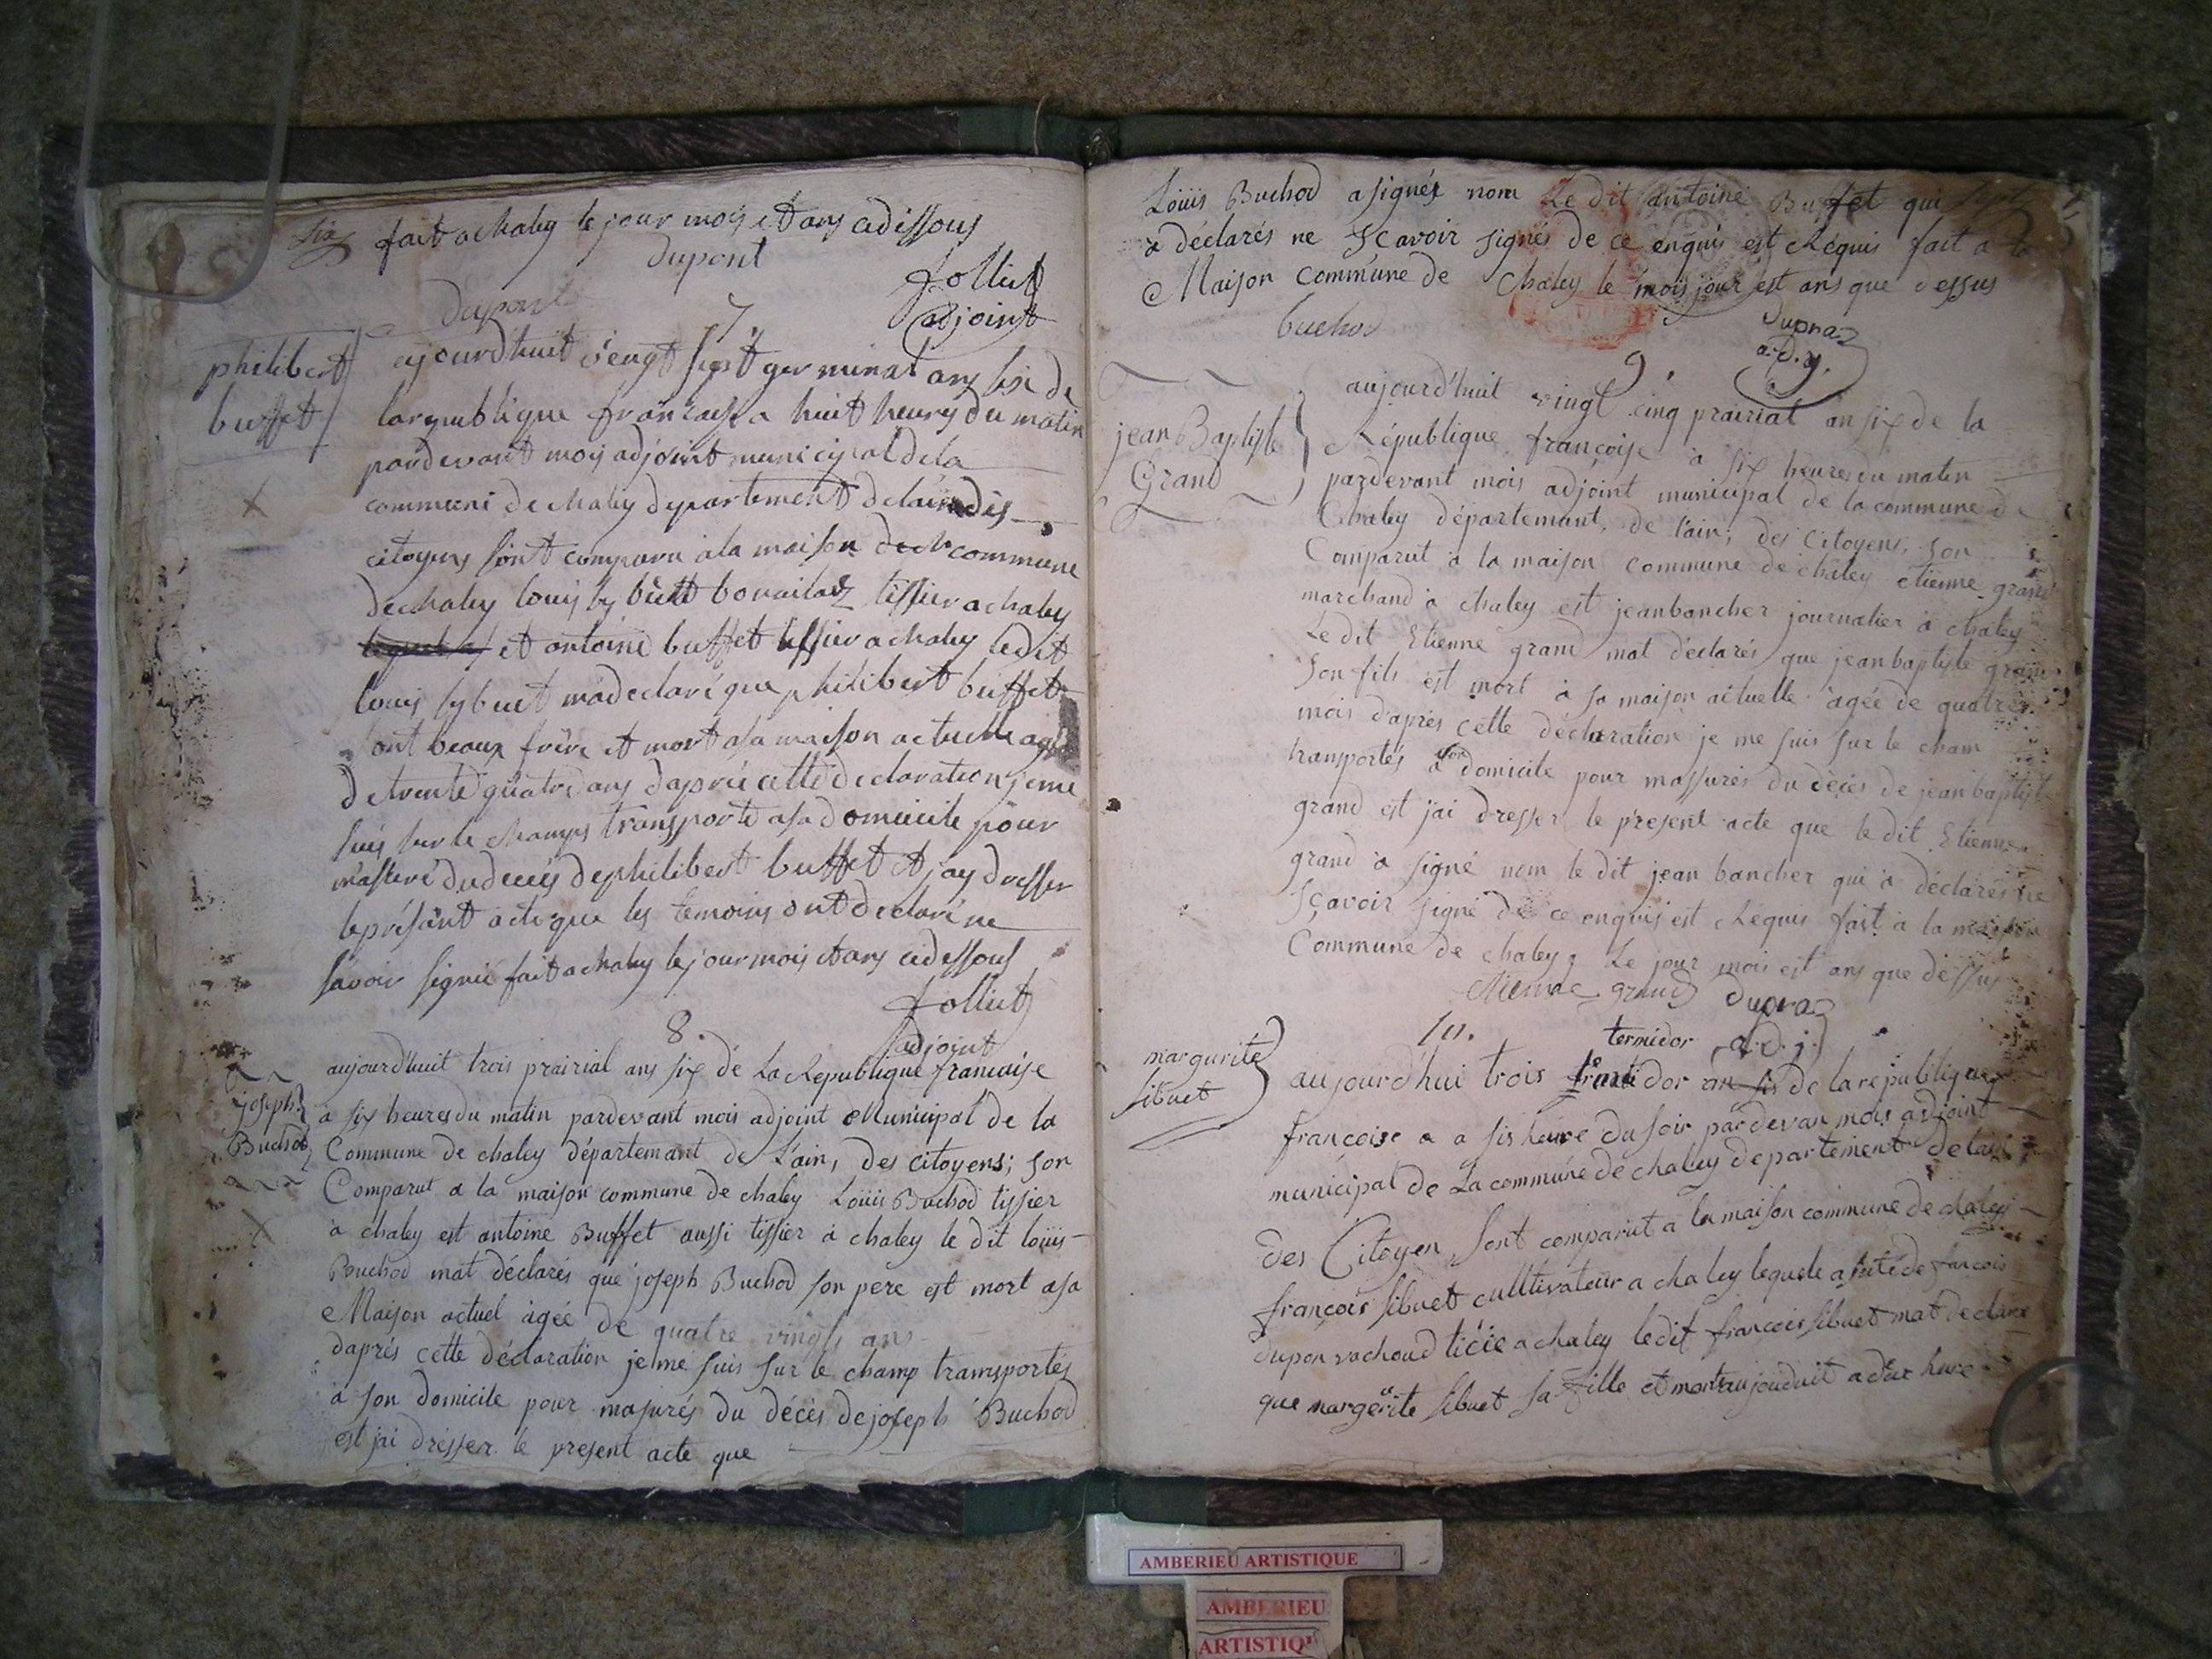 six fait a chaley le jour mois et ans cidissous
dupont
dupont
Jolliet
adjoint
7
philibert
buffet
ajourdhuit vengt sept germinal ans six de
larepublique francaise a huit heures du matin
pardevant mois adjoint municipal dela
commune de chaley departement delain des
citoyens sont comparu a la maison de la commune
dechaley louis sybuet tissier a chaley
et antoine buffet tissier a chaley ledit
louis sybuet madeclaré que philibert buffet
sont beaux frere et mort a sa maison actuelle agé
de trente quatre ans daprés cette declaration je me
suis sur le champs transporté a sa domicile pour
masseré dudecés dephilibert buffet et jay dresser
le présant acte que les temoins ont declaré ne
savoir signié fait a chaley le jour mois et ans cidessous
Jolliet
adjoint
8.
joseph
Buchod
aujourd'huit trois prairial ans six de La Republique francaise
à six heures du matin pardevant mois adjoint Municipal de la
Commune de chaley département de L'ain, des citoyens; son
Comparut a la maison commune de chaley Louis Buchod tissier
à chaley est antoine Buffet aussi tissier à chaley le dit louis
Buchod mat déclarés que joseph Buchod son pere est mort a sa
Maison actuel agée de quatre vingts ans
daprés cette déclaration je me suis sur le champ transportés
à son domicile pour masurés du décès de joseph Buchod
est jai dresser le present acte que
Louis Buchod a signés nom Le dit antoine Buffet qui
a déclarés ne Sçavoir signés de ce enquis est Réquis fait a la
Maison Commune de Chaley le mois jour est ans que dessus
buchod
Dupraz
a.d.j.
9.
jean Baptiste
Grand
aujourd'huit vingt cinq prairial an six de la
République francoise à six heures du matin
pardevant mois adjoint municipal de la commune de
Chaley département, de l'ain; des Citoyens, son
Comparut à la maison commune de chaley etienne grand
marchand à chaley est jean bancher journalier à chaley
Le dit Etienne grand mat déclarés que jean baptiste grand
Son fils est mort à sa maison actuelle agée de quatre
mois d'aprés cette déclaration je me suis sur le cham
transportés a son domicile pour massurés du décès de jean baptiste
grand est j'ai dresser le present acte que le dit Etienne
grand à signé nom le dit jean bancher qui à déclarés ne
Sçavoir signé de ce enquis est Réquis fait à la maison
Commune de chaley, Le jour mois est ans que déssus
etienne grand
Dupraz
a.d.j.
10.
margurite
sibuet
termidor
aujourd'hui trois an sis de la republique
françoise a a sis heure du soir pardevan mois adjoint
municipal de La commune de chaley departement de lain
des Citoyen sont comparut a la maison commune de chaley
françois sibuet cultivateur a chaley de francois
dupon vachoud ticié a chaley ledit francois sibuet mat declaré
que margerite sibuet sa fille et mort aujouduit a hure
AMBERIEU ARTISTIQUE
AMBERIEU
ARTISTIQ